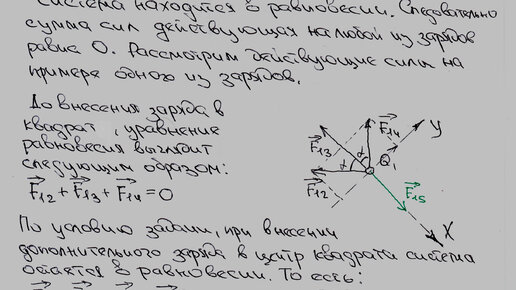 система находится в равновесии. Следовательно
сумма сил действующая на любой из зарядов
равна 0. Рассмотрим действующие силы на
примере одного из зарядов.
До внесения заряда в
квадрат, уравнение
равновесия выглядит
следующим образом:
F12 + F13 + F14 = 0
F13
F14
y
α
α
Q1
F12
F15
X
По условию задачи, при внесении
дополнительного заряда в центр квадрата система
остаётся в равновесии. То есть: